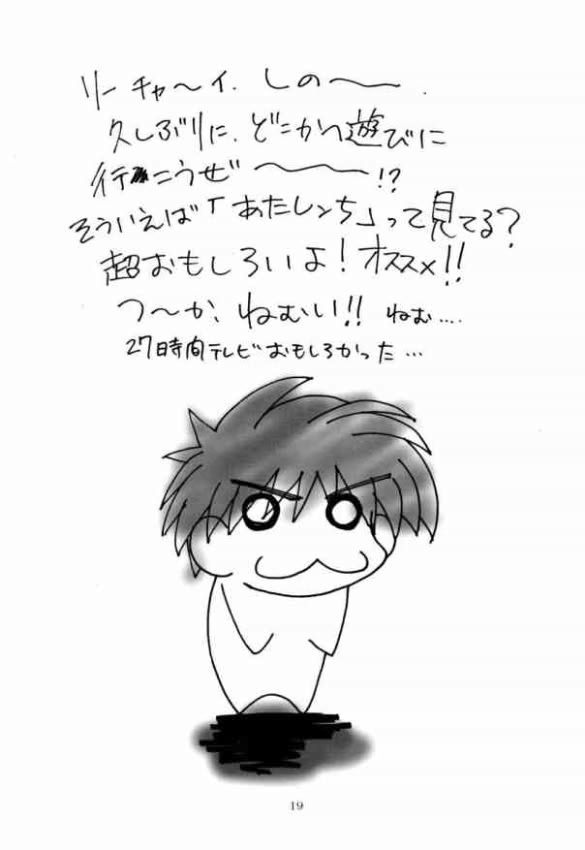 リーチャ～イ. しの～～.
久しぶりに、どこかへ遊びに
行こうぜ～～～!?
そういえば「あたしンち」って見てる?
超おもしろいよ! オススメ!!
つ～か、ねむい!! ねむ....
27時間テレビおもしろかった...
19